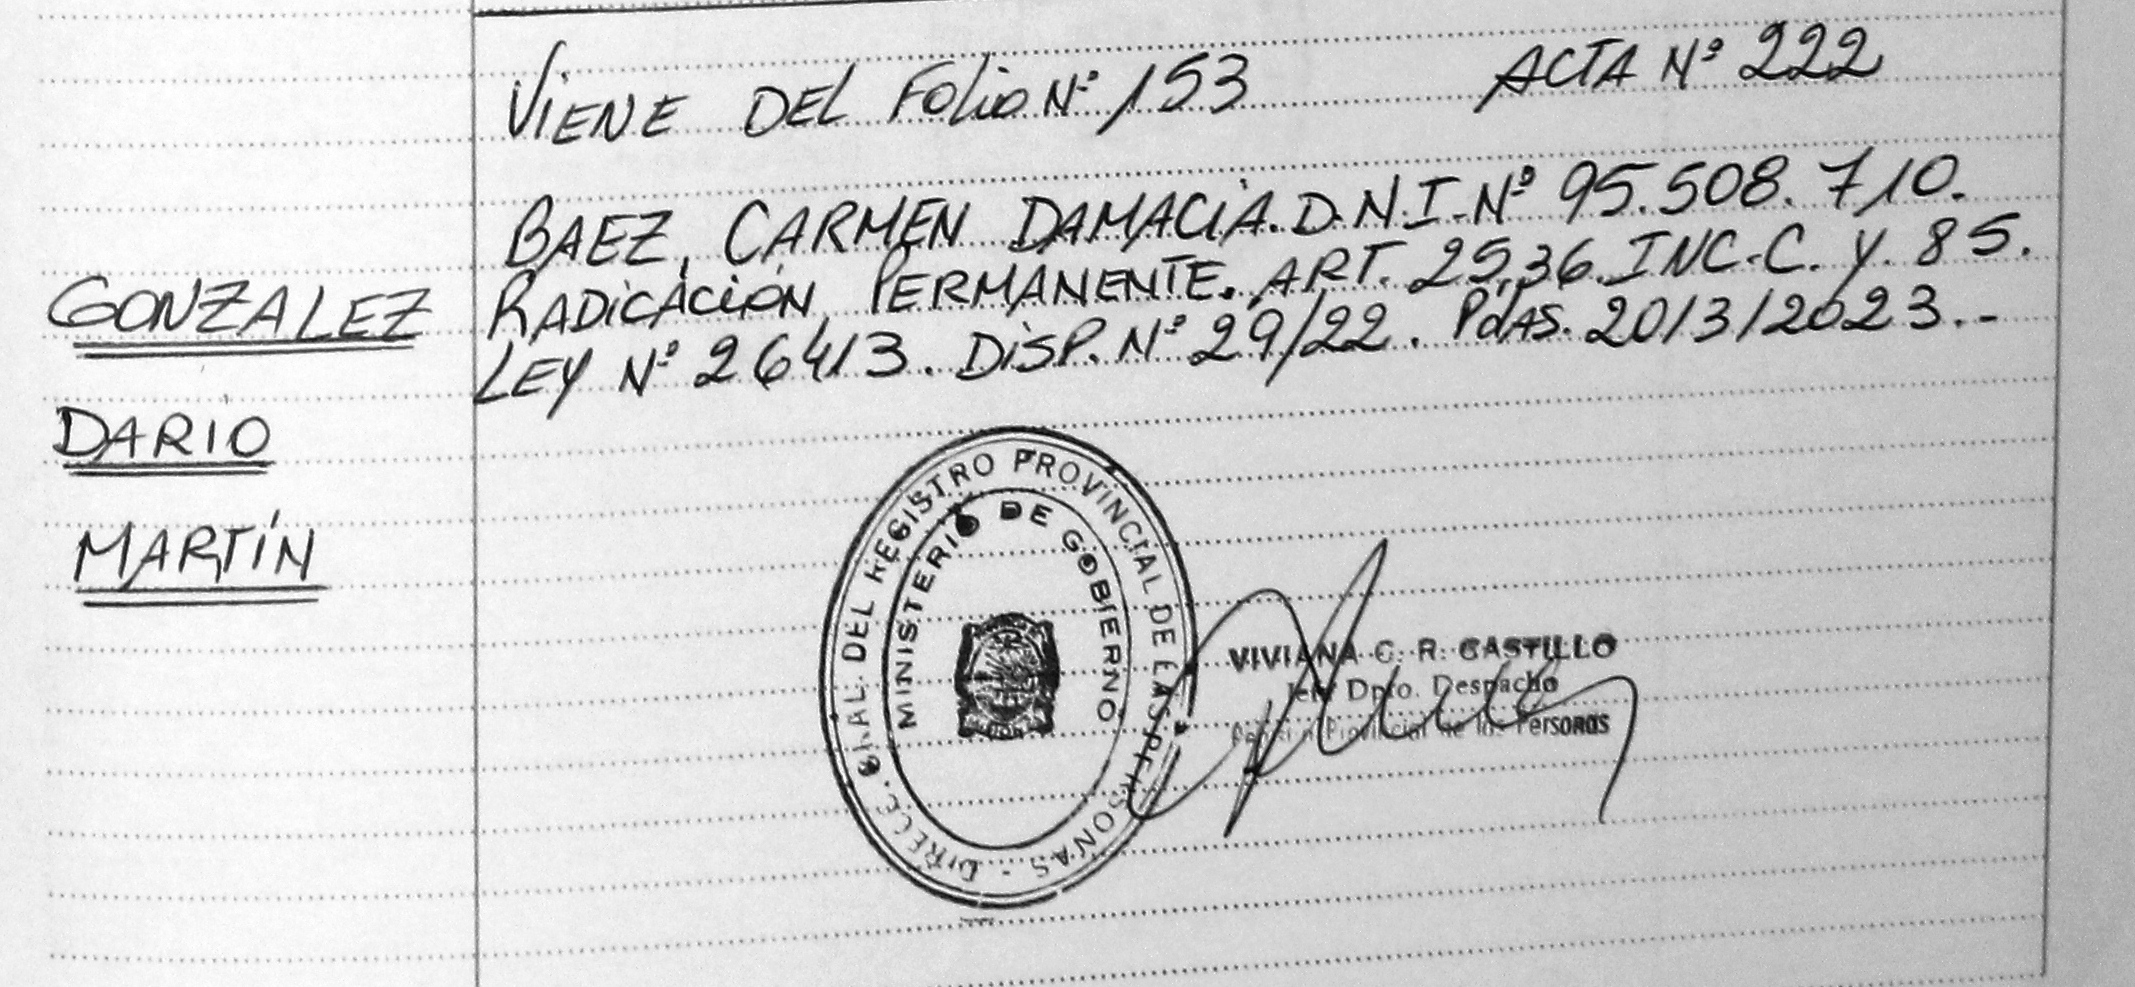 VIENE DEL Folio Nº 153 ACTA Nº 222
BAEZ, CARMEN DAMACIA. D.N.I. Nº 95.508.710.
RADICACIÓN PERMANENTE. ART. 25,36. INC. C. Y. 85.
LEY Nº 26413. DISP. Nº 29/22. PdAS. 20/3/2023.-
GONZALEZ
DARIO
MARTÍN
DIRECC. GRAL. DEL REGISTRO PROVINCIAL DE LAS PERSONAS -
MINISTERIO DE GOBIERNO
VIVIANA C. R. CASTILLO
Jefe Dpto. Despacho
Provincial de las Personas